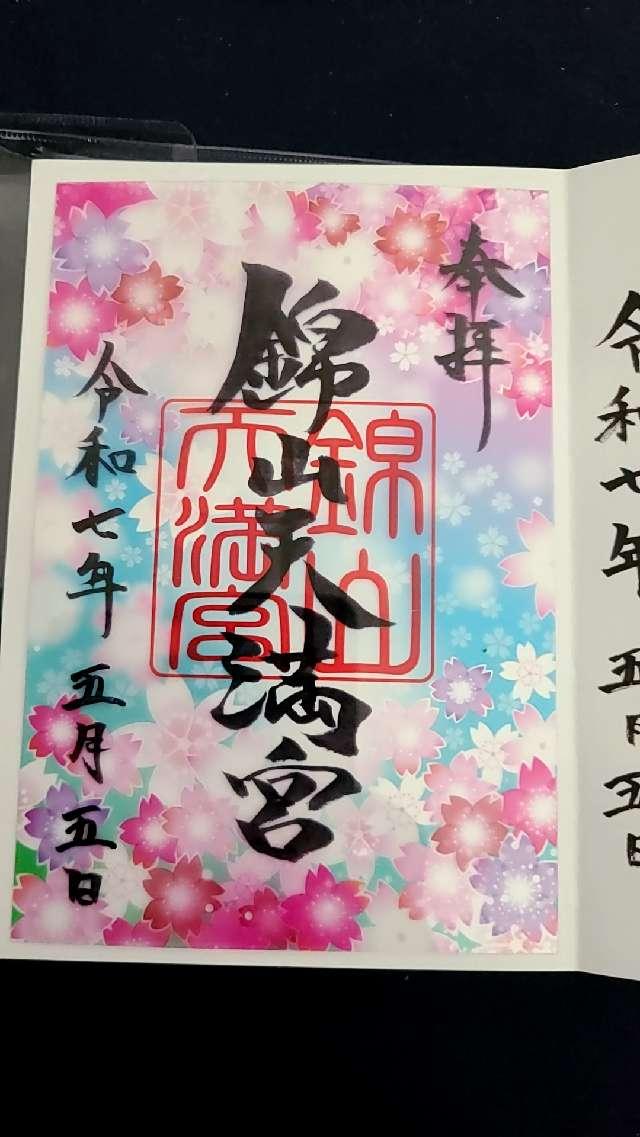 令和七年五月五日
奉拝
錦山天満宮
錦山
天満宮
令和七年 五月 五日